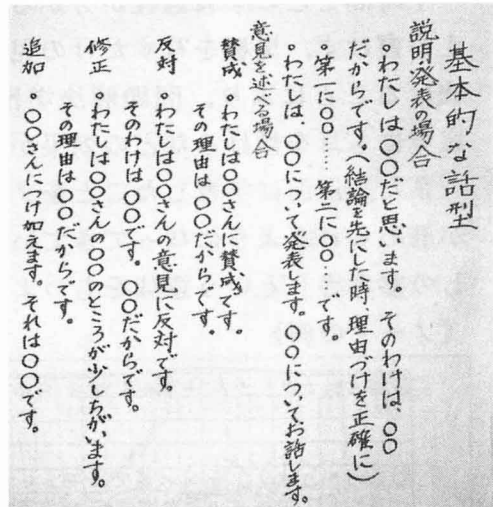 基本的な話型
説明発表の場合
。わたしは〇〇だと思います。そのわけは、〇〇
だからです。（結論を先にした時、理由づけを正確に）
第一に〇〇……第二に〇〇……です。
。わたしは、〇〇について発表します。〇〇についてお話します。
意見を述べる場合
賛成 。わたしは〇〇さんに賛成です。
その理由は〇〇だからです。
反対 。わたしは〇〇さんの意見に反対です。
そのわけは〇〇です。〇〇だからです。
修正 わたしは〇〇さんの〇〇のところが少しちがいます。
その理由は〇〇だからです。
追加 〇〇さんにつけ加えます。それは〇〇です。